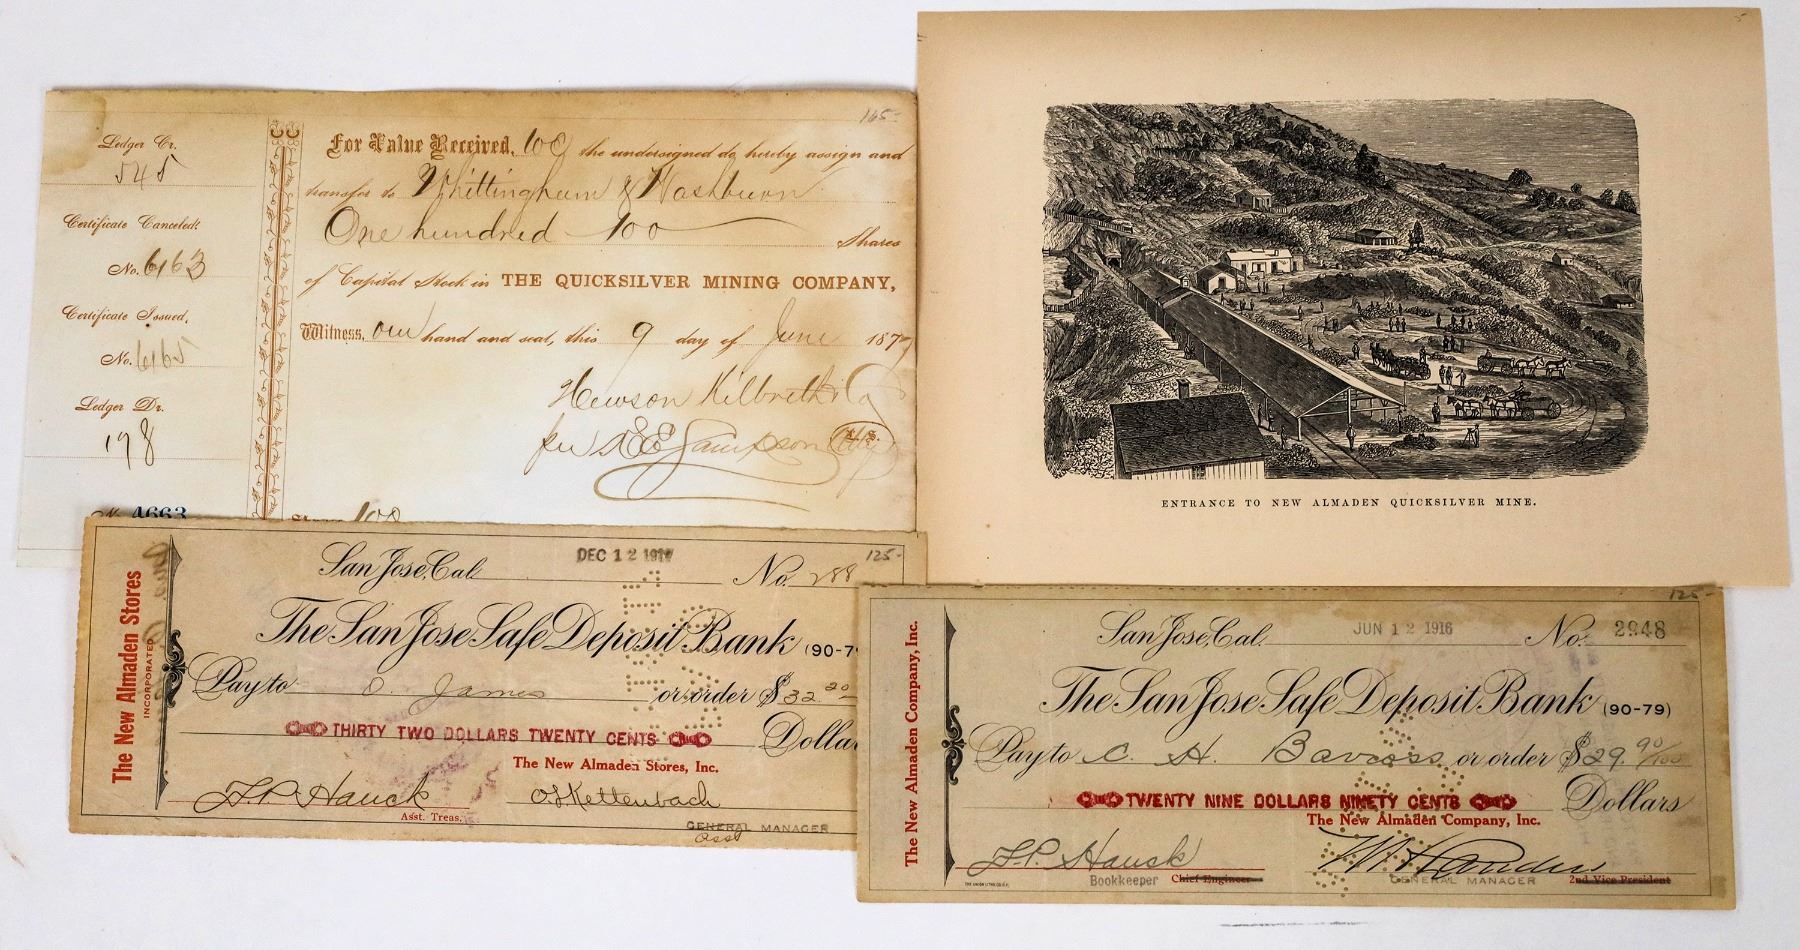 165-
Ledger Cr.
545
Certificate Canceled.
No. 6163
Certificate Issued,
No. 6165
Ledger Dr.
178
No. 4663
For Value Received, the undersigned do hereby assign and
transfer to Whittingham & Washburn
One hundred 100 Shares
of Capital Stock in THE QUICKSILVER MINING COMPANY,
Witness, our hand and seal, this 9 day of June 187
Hewson Kilbreth & Co
Sampson
100
5
ENTRANCE TO NEW ALMADEN QUICKSILVER MINE.
The New Almaden Stores
INCORPORATED
San Jose, Cal. DEC 12 191 No. 288
125-
The San Jose Safe Deposit Bank (90-7
Pay to O. James or order $ 32 20
THIRTY TWO DOLLARS TWENTY CENTS Dolla
The New Almaden Stores, Inc.
F.P. Hauck O.S. Kettenbach
Asst. Treas. GENERAL MANAGER
Asst
The New Almaden Company, Inc.
125-
San Jose, Cal. JUN 12 1916 No. 2948
The San Jose Safe Deposit Bank (90-79)
Pay to C. H. Barcoss or order $ 29. 90/100
TWENTY NINE DOLLARS NINETY CENTS Dollars
The New Almaden Company, Inc.
F.P. Hauck
Bookkeeper Chief Engineer GENERAL MANAGER 2nd Vice President